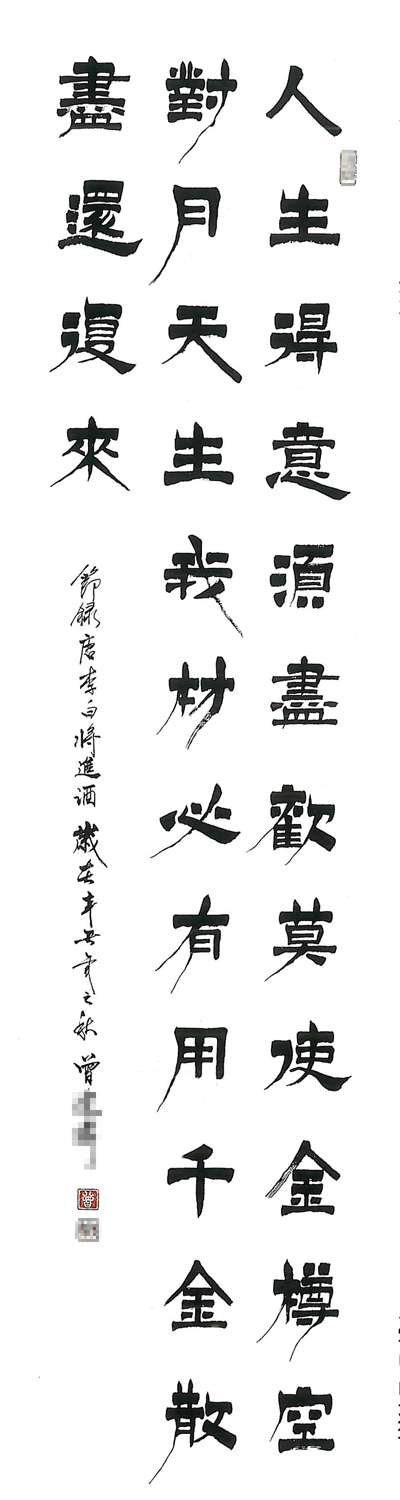 人生得意須盡歡莫使金樽空
對月天生我材必有用千金散
盡還復來
節録唐李白將進酒歲在辛丑年之秋曾
曾